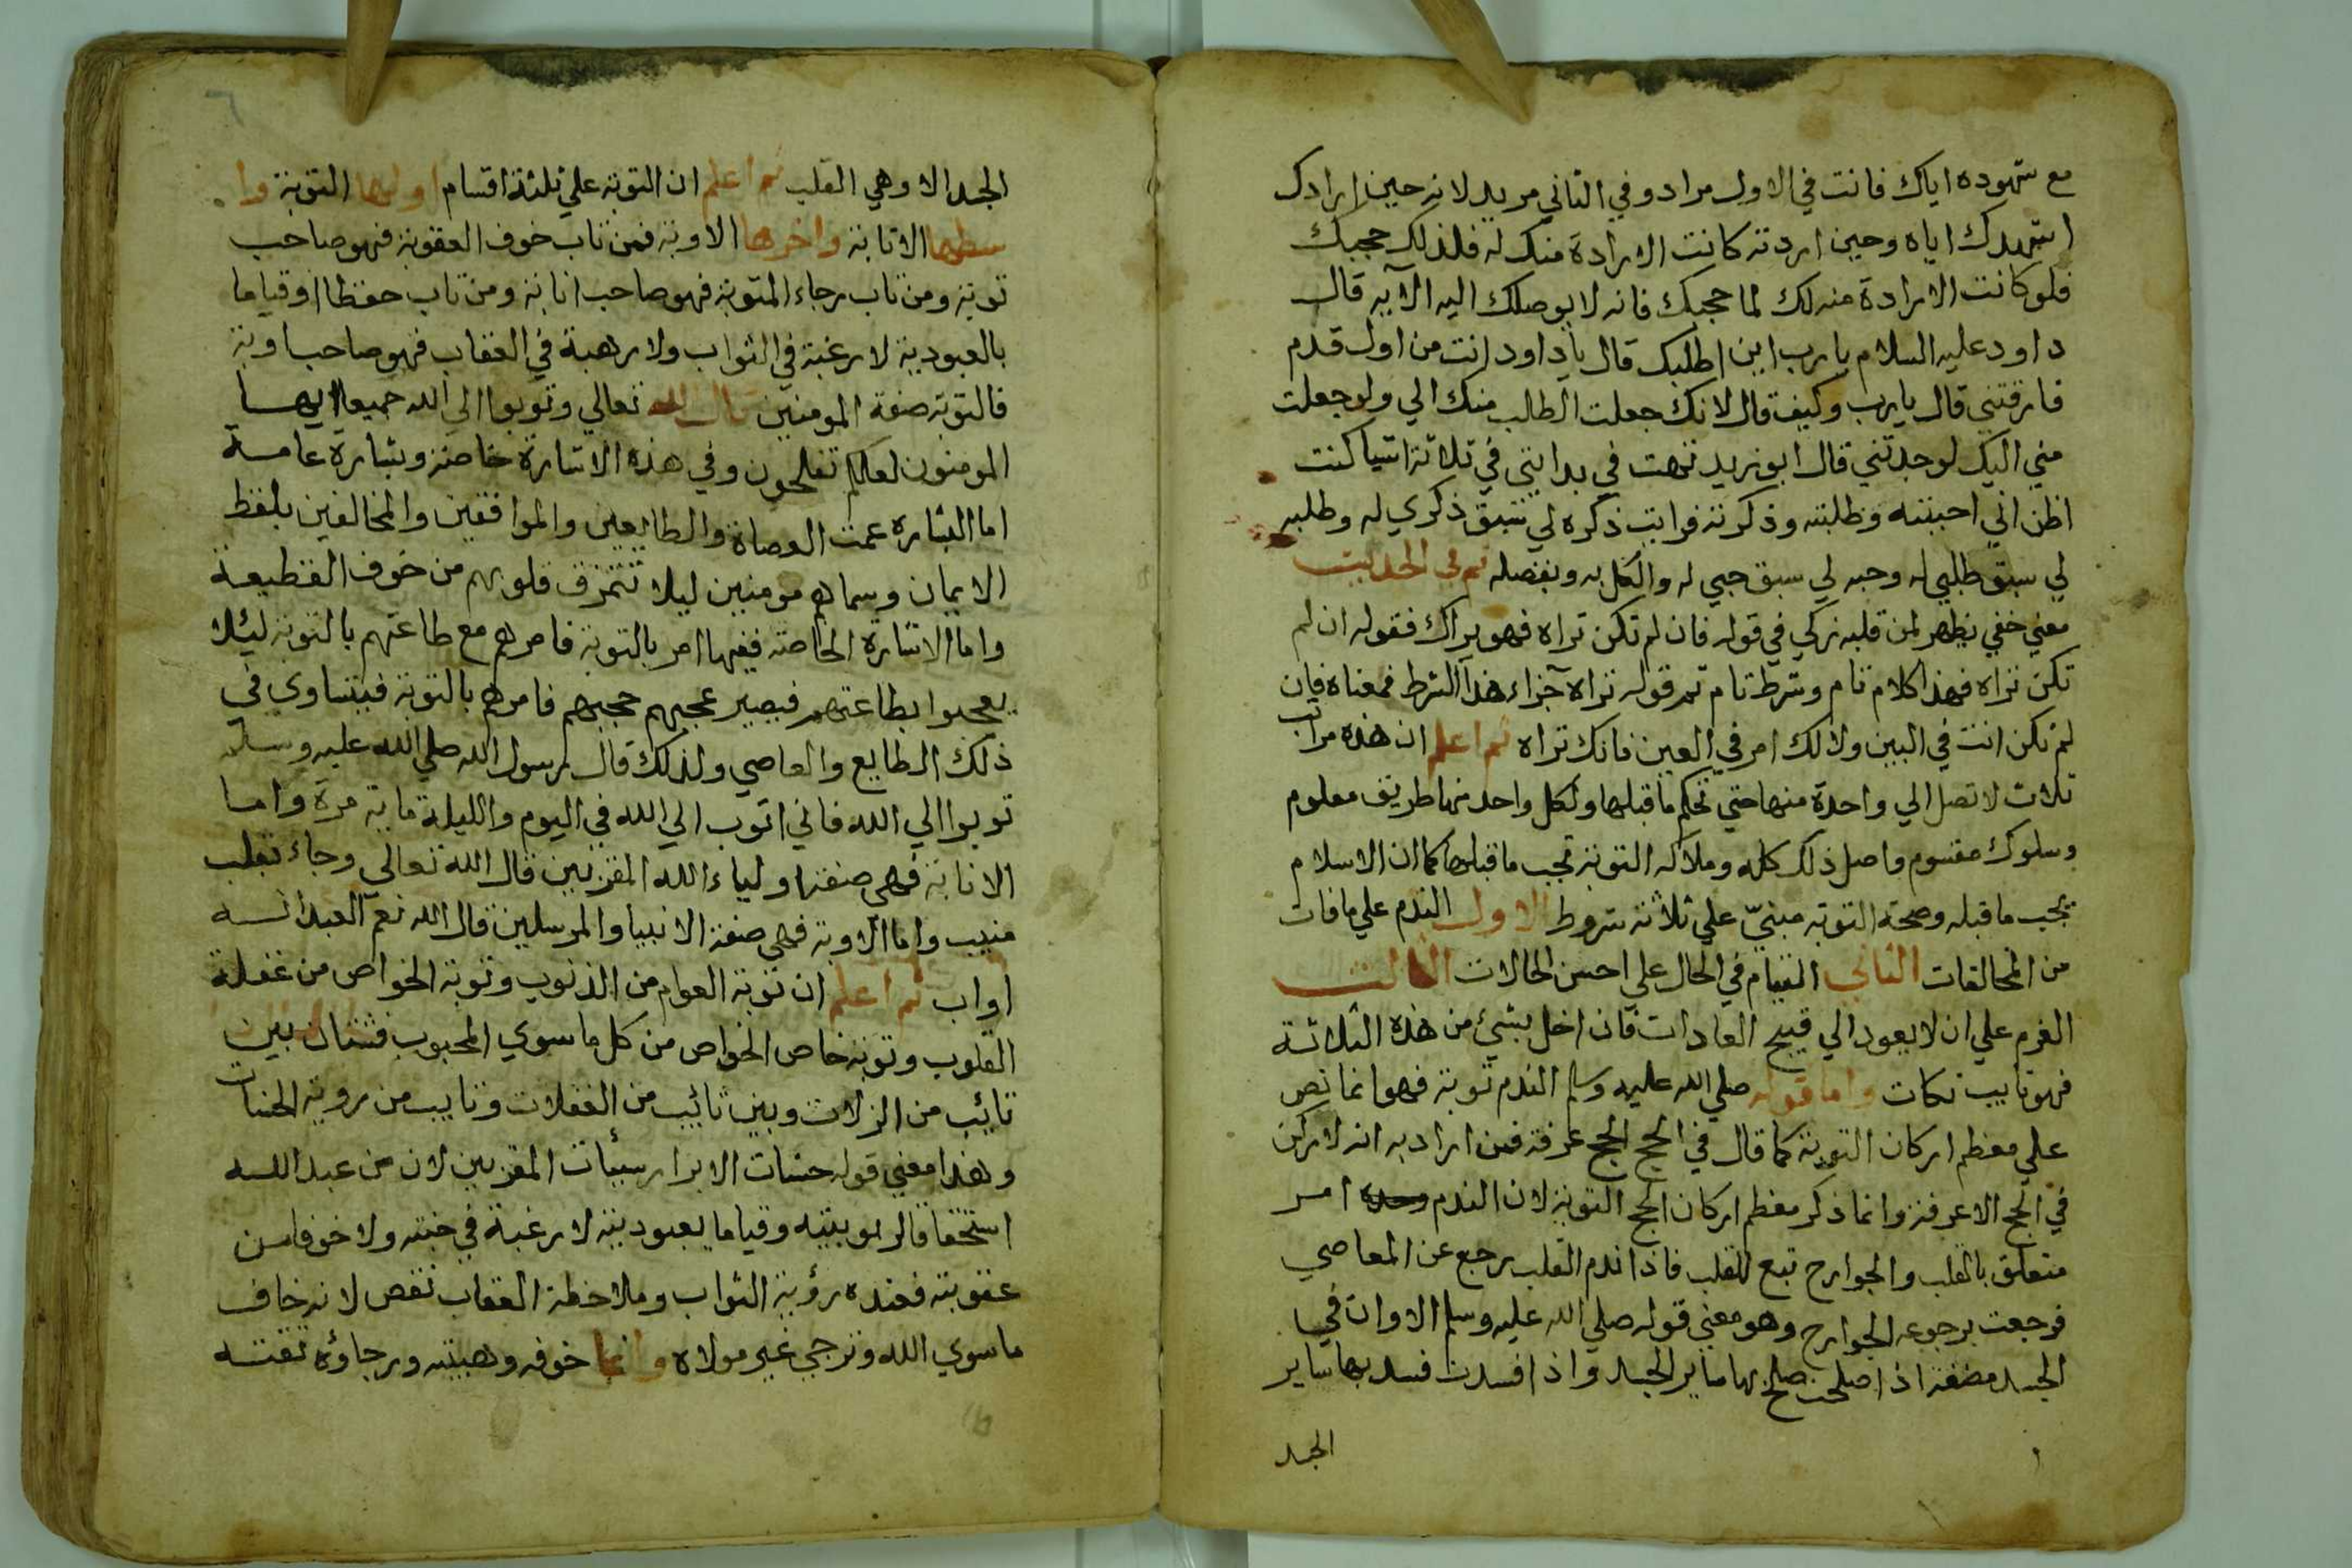 مع شهوده اياك فانت في الاول مراد وفي الثاني مريد لانه حين ارادك
اشهدك اياه وحين اردته كانت الارادة منك له فلذلك حجبك
فلو كانت الارادة منه لك لما حجبك فانه لا يوصلك اليه الا به قال
داود عليه السلام يا رب اين اطلبك قال يا داود انت من اول قدم
فارقتني قال يا رب وكيف قال لانك جعلت الطالب منك الي ولو جعلت
مني اليك لوجدتني قال ابو يزيد تهت في بدايتي في ثلاثة اشيا كنت
اظن اني احببته وطلبته وذكرته فرايت ذكره لي سبق ذكري له وطلبه
لي سبق طلبي له وحبه لي سبق حبي له والكل به وبفضله ثم في الحديث
معني خفي يظهر لمن قلبه زكي في قوله فان لم تكن تراه فهو يراك فقوله ان لم
تكن تراه فهذا كلام تام وشرط تام ثم قوله تراه جزاء هذا الشرط فمعناه فان
لم تكن انت في البين ولا لك امر في العين فانك تراه ثم اعلم ان هذه مراتب
ثلاث لا تصل الي واحدة منها حتي تحكم ما قبلها ولكل واحد منها طريق معلوم
وسلوك مقسوم واصل ذلك كله وملاكه التوبة تجب ما قبلها كما ان الاسلام
يجب ما قبله وصحة التوبة مبنيّ علي ثلاثة شروط الاول الندم علي ما فات
من المخالفات الثاني القيام في الحال علي احسن الحالات الثالث
العزم علي ان لا يعود الي قبيح العادات فان اخل بشيء من هذه الثلاثة
فهو تايب نكات واما قوله صلي الله عليه وسلم الندم توبة فهو انما نص
علي معظم اركان التوبة كما قال في الحج الحج عرفة فمن اراد به انه لا ركن
في الحج الا عرفة وانما ذكر معظم اركان الحج التوبة لان الندم وحده امر
متعلق بالقلب والجوارح تبع للقلب فاذا ندم القلب رجع عن المعاصي
فرجعت برجوعه الجوارح وهو معني قوله صلي الله عليه وسلم الا وان في
الجسد مضغة اذا صلحت صلح بها ساير الجسد واذا فسدت فسد بها ساير
الجسد
٦
الجسد الا وهي القلب ثم اعلم ان التوبة علي ثلثة اقسام اولها التوبة وا
سطها الانابة واخرها الاوبة فمن تاب خوف العقوبة فهو صاحب
توبة ومن تاب رجاء المثوبة فهو صاحب انابة ومن تاب حفظا او قياما
بالعبودية لا رغبة في الثواب ولا رهبة في العقاب فهو صاحب اوبة
فالتوبة صفة المومنين قال الله تعالي وتوبوا الي الله جميعا ايها
المومنون لعلكم تفلحون وفي هذه الاشارة خاصة وبشارة عامة
اما البشارة عمت العصاة والطايعين والموافقين والمخالفين بلفظ
الايمان وسماهم مومنين ليلا تتمزق قلوبهم من خوف القطيعة
واما الاشارة الخاصة ففيها امر بالتوبة فامرهم مع طاعتهم بالتوبة ليئلا
يعجبوا بطاعتهم فيصير عجبهم حجبهم فامرهم بالتوبة فيتساوي في
ذلك الطايع والعاصي ولذلك قال رسول الله صلي الله عليه وسلم
توبوا الي الله فاني اتوب الي الله في اليوم والليلة ماية مرة واما
الانابة فهي صفة اولياء الله المقربين قال الله تعالي وجاء بقلب
منيب واما الاوبة فهي صفة الانبيا والمرسلين قال الله نعم العبد انه
اواب ثم اعلم ان توبة العوام من الذنوب وتوبة الخواص من غفلة
القلوب وتوبة خاص الخواص من كل ما سوي المحبوب فشتان بين
تائب من الزلات وبين تائب من الغفلات وتايب من روية الحسنات
وهذا معني قوله حسنات الابرار سيئات المقربين لان من عبد الله
استحقاقا لربوبيته وقياما بعبوديته لا رغبة في جنته ولا خوفا من
عقوبته فعنده رؤية الثواب وملاحظة العقاب نقص لانه خاف
ما سوي الله وترجي غير مولاه وانما خوفه وهيبته ورجاؤه ثقته